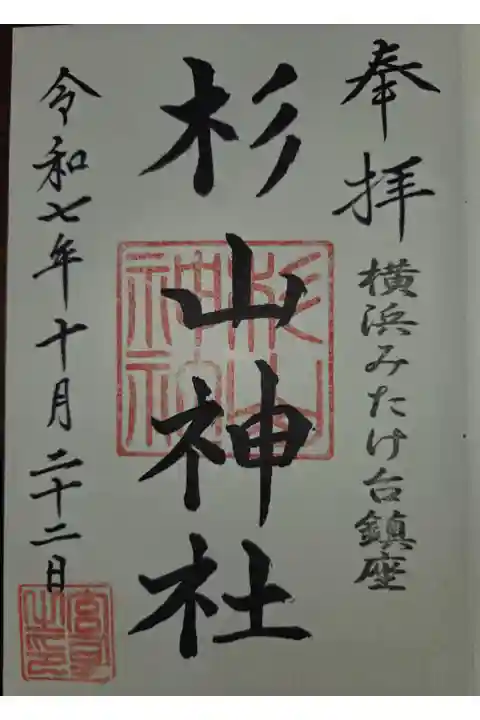 奉拝
横浜みたけ台鎮座
杉山神社
杉山
神社
令和七年十月二十二日
宮司
之印